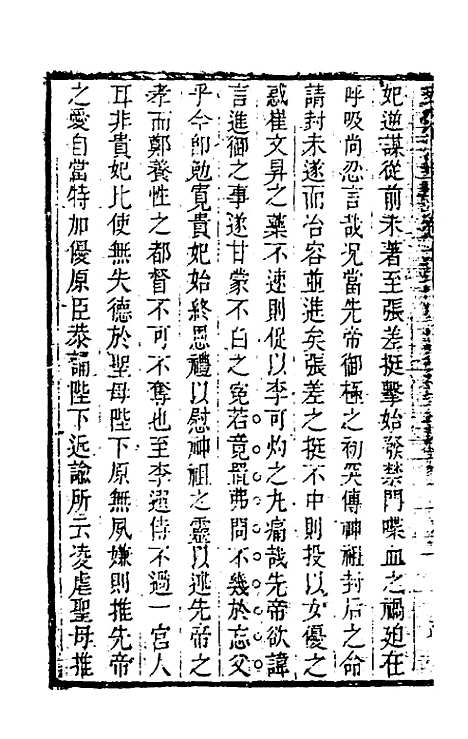 妃逆謀從前未著至張差挺擊始發禁門喋血之禍廹在
呼吸尚忍言哉况當先帝御極之初突傳神祖封后之命
請封未遂而冶容並進矣張差之挺不中則投以女優之
惑崔文昇之藥不速則促以李可灼之丸痛哉先帝欲諱
言進御之事遂甘蒙不白之冤若竟置弗問不幾於忘父
乎今卽勉寬貴妃始終恩禮以慰神祖之靈以述先帝之
孝而鄭養性之都督不可不奪也至李選侍不過一宮人
耳非貴妃比使無失德於聖母陛下原無夙嫌則推先帝
之愛自當特加優原臣恭誦陛下近諭所云凌虐聖母推